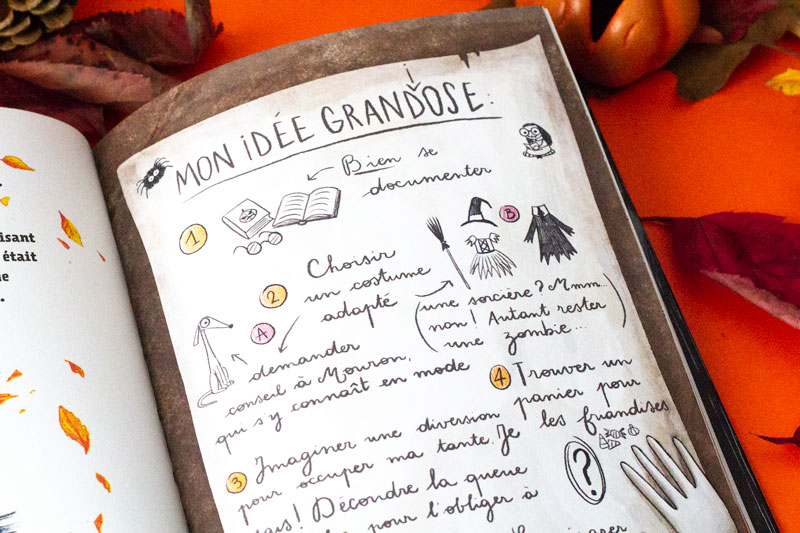 isant
était
e
MON IDÉE GRANDIOSE :
1
Bien se
documenter
2
Choisir
un costume
adapté
A
demander
conseil à Mouron,
qui s'y connaît en mode
B
(une sorcière ? Mmm...
non ! Autant rester
une zombie...)
3
Imaginer une diversion
pour occuper ma tante. Je
sais ! Découdre la queue
pour l'obliger à
4
Trouver un
panier pour
les friandises
?